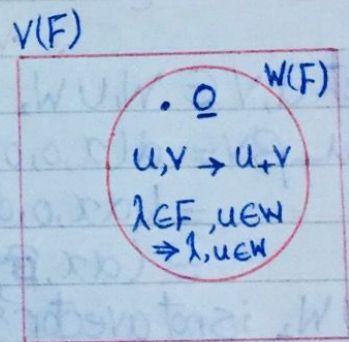 V(F)
W(F)
. 0
u,v → u+v
λ∈F, u∈W
⇒ λ,u∈W